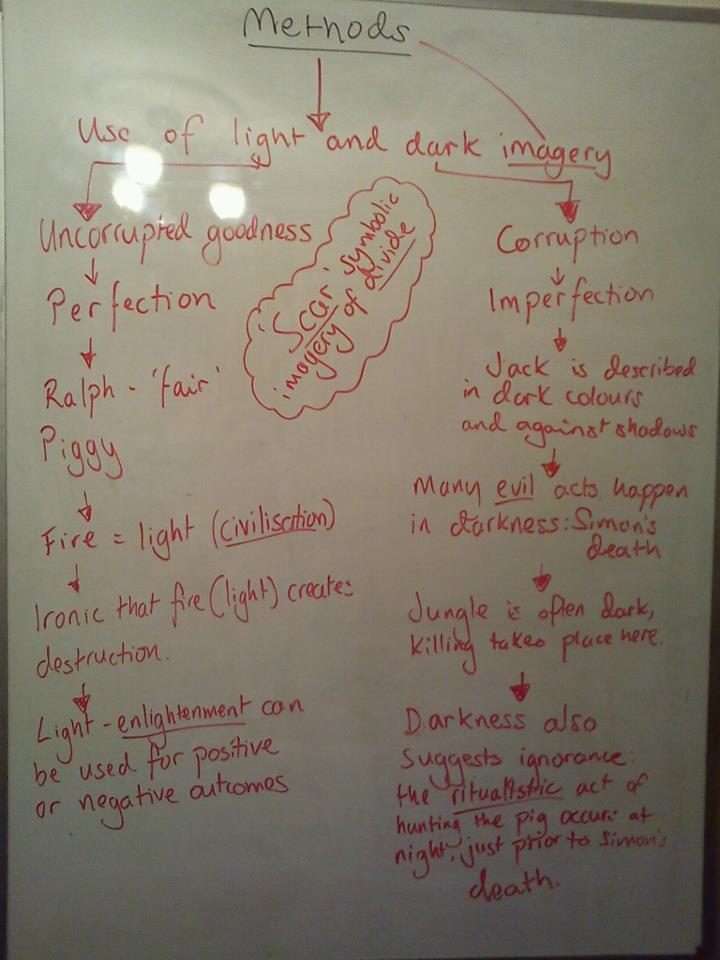 Methods
Use of light and dark imagery
Uncorrupted goodness
Perfection
Ralph - 'fair'
Piggy
Fire = light (civilisation)
Ironic that fire (light) creates
destruction.
Light - enlightenment can
be used for positive
or negative outcomes
'Scar' symbolic
imagery of divide
Corruption
Imperfection
Jack is described
in dark colours
and against shadows
Many evil acts happen
in darkness: Simon's
death
Jungle is often dark,
killing takes place here.
Darkness also
suggests ignorance:
the ritualistic act of
hunting the pig occurs at
night, just prior to Simon's
death.